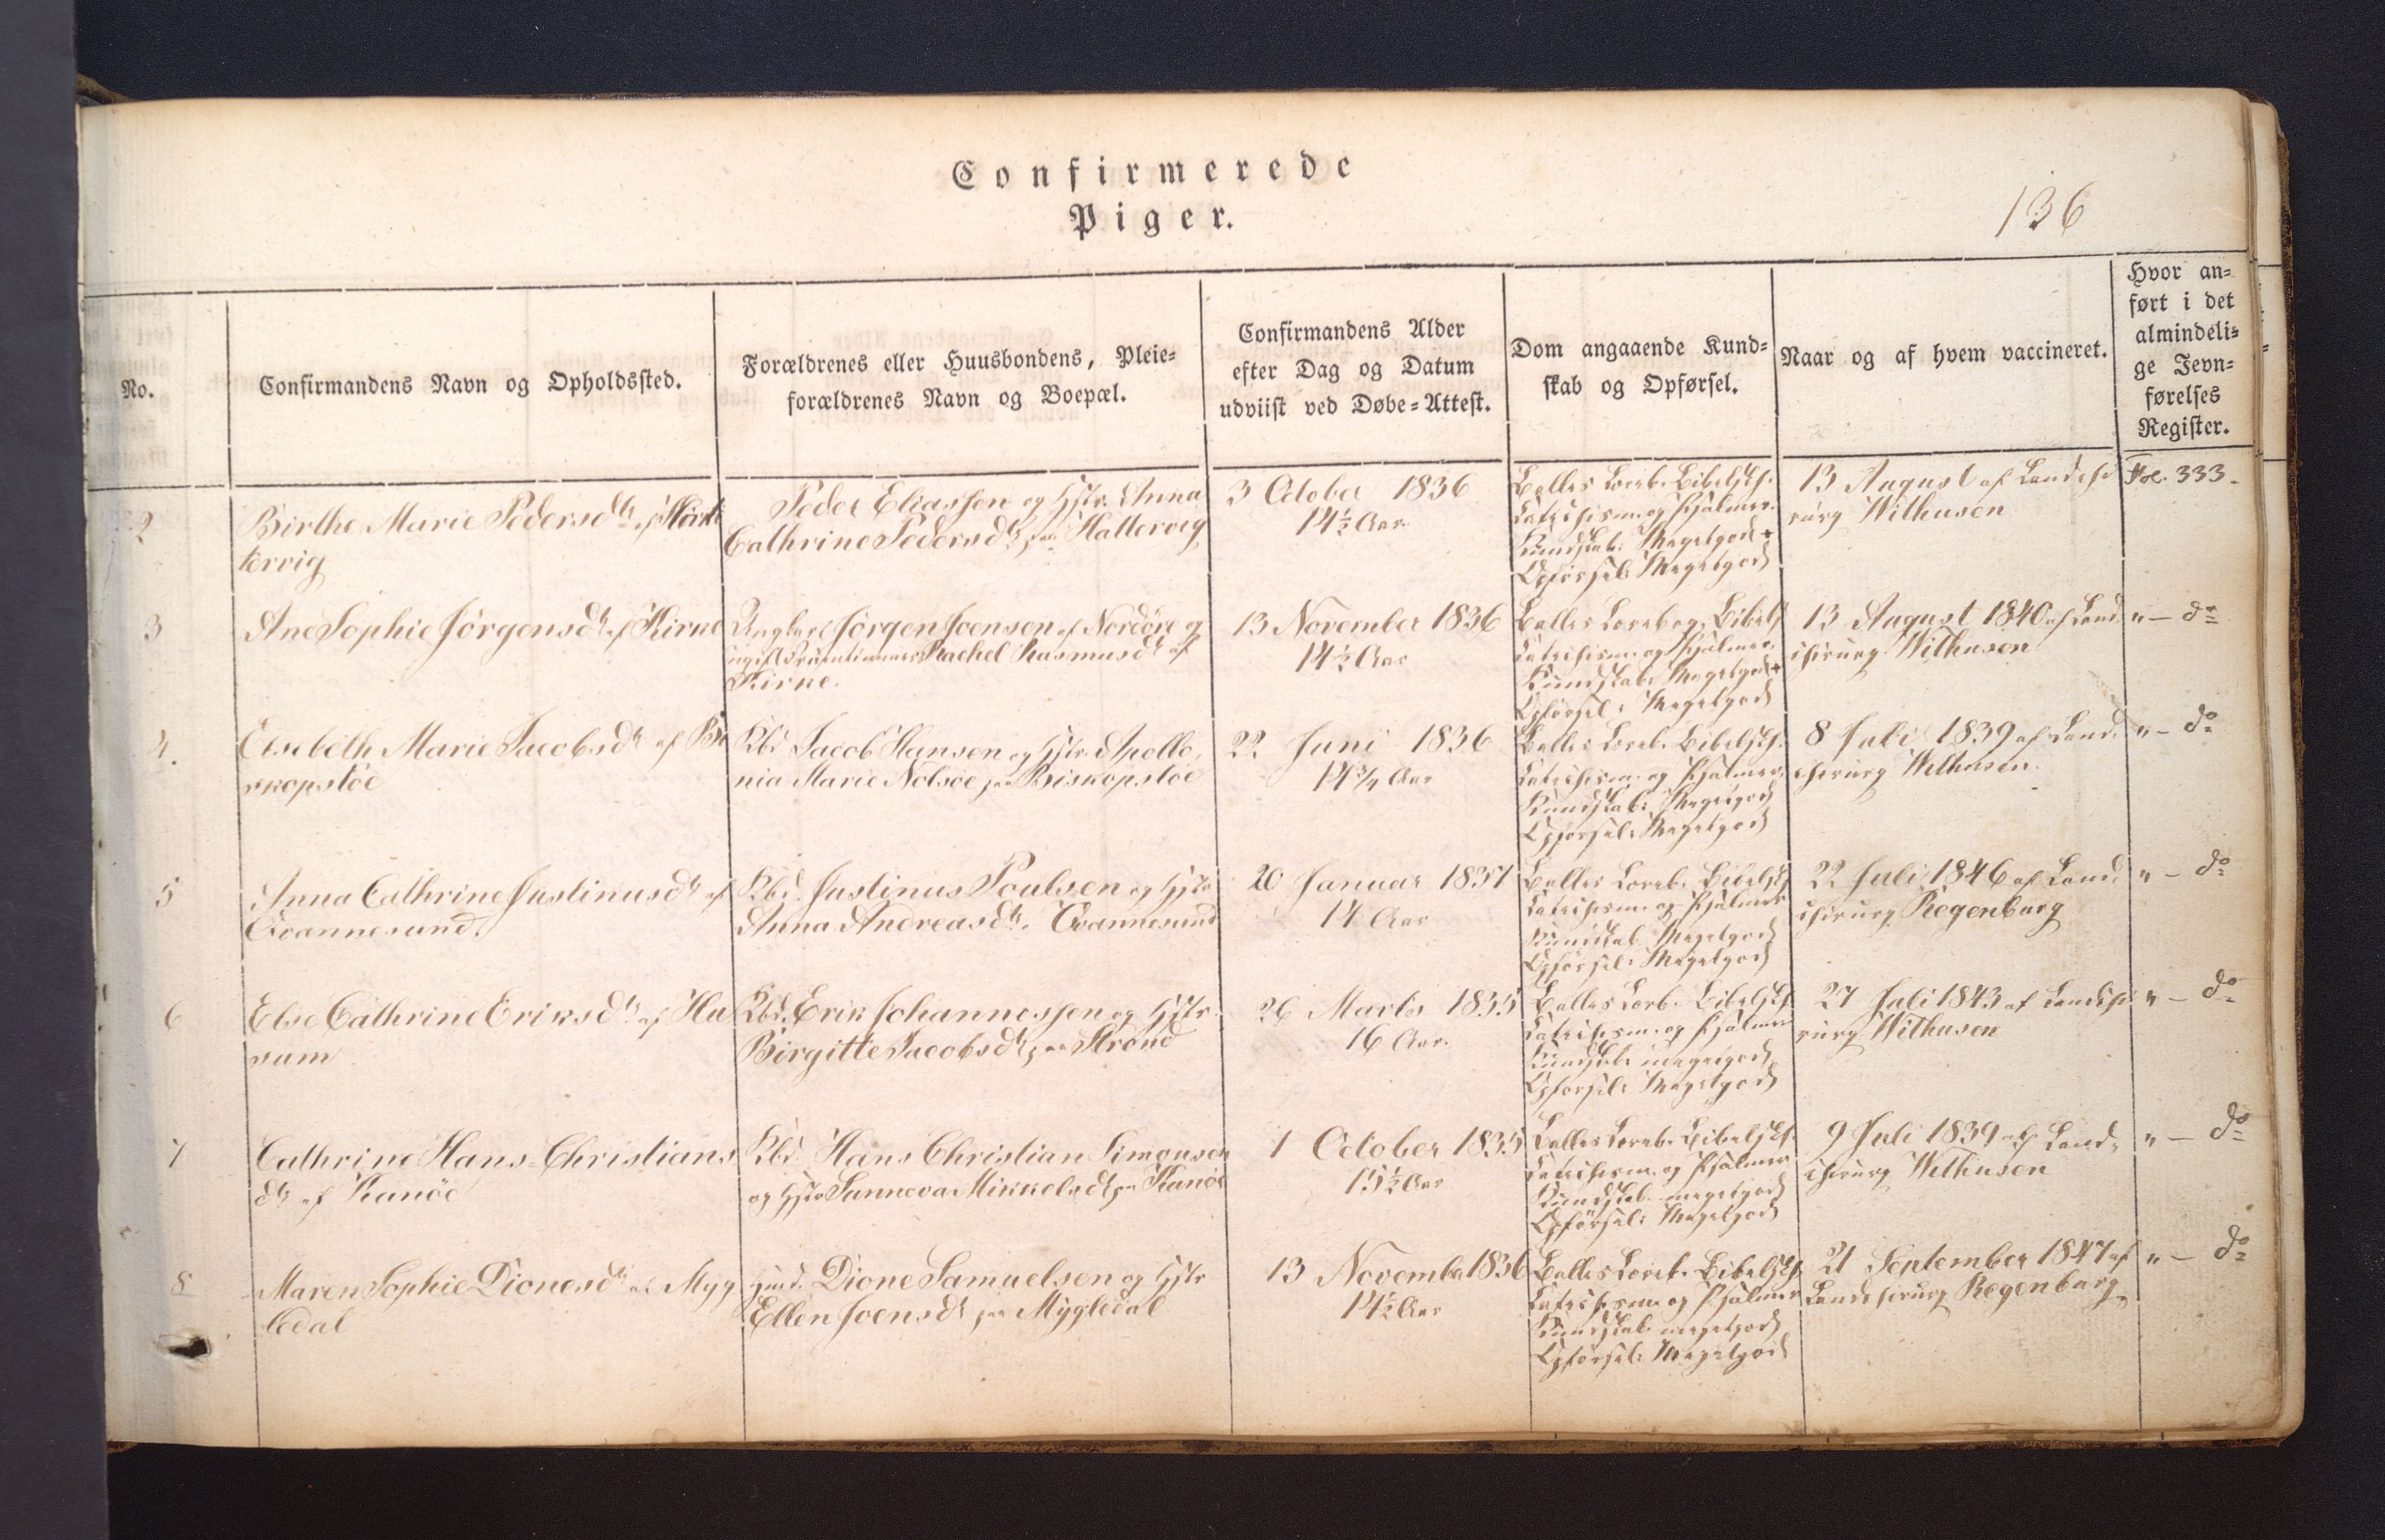 Confirmerede
Piger.
136
No.
Confirmandens Navn og Opholdssted.
Forældrenes eller Huusbondens, Pleie=
forældrenes Navn og Boepæl.
Confirmandens Alder
efter Dag og Datum
udviist ved Døbe=Attest.
Dom angaaende Kund=
skab og Opførsel.
Naar og af hvem vaccineret.
Hvor an=
ført i det
almindeli=
ge Jevn=
førelses
Register.
2
Birthe Marie Pedersdtr af
tervig
Peder Eliassen og Hstr. Anna
Cathrine Pedersdtr paa Hattervig
3 October 1836
14½ Aar
Balles Læreb. Bibelsk.
Katechism. og Psalmer.
Kundskab: Megetgod+
Opførsel: Megetgod
13 August af Landchi
rurg Withusen
Fol. 333.
3
Ane Sophie Jørgensdtr af Kirne
Ungkarl Jørgen Joensen af Nordöre og
ugift Fruentimmer Rachel Rasmusdtr af
Kirne.
13 November 1836
14½ Aar
Balles Læreb og Bibelsk
Katechism. og Psalmer.
Kundskab: Megetgod+
Opförsel: Megetgod
13 August 1840 af Land
chirurg Withusen
" — do
4.
Elsebeth Marie Jacobsdtr af Bi
skopstöe
Kbd Jacob Hansen og Hstr. Apollo
nia Marie Nolsöe paa Biskopstöe
22 Juni 1836
14¾ Aar
Balles Læreb. Bibelsk.
Katechism. og Psalmer.
Kundskab: Megetgod
Opførsel: Megetgod
8 Juli 1839 af Land
chirurg Withusen.
" — do
5
Anna Cathrine Justinusdtr af
Qvannesund.
Kbd. Justinus Poulsen og Hstr
Anna Andreasdtr. Qvannesund
20 Januar 1837
14 Aar
Balles Læreb. Bibelsk
Katechism. og Psalmer
Kundskab Megetgod
Opførsel: Megetgod
22 Juli 1846 af Land
chirurg Regenburg
" — do
6
Else Cathrine Eriksdtr af Hu
sum
Kbd. Erik Johannessen og Hstr.
Birgitte Jacobsdtr paa Strönd
26 Marts 1835
16 Aar.
Balles Læreb. Bibelsk
Katechism. og Psalmer
Kundskab: megetgod
Opførsel: Megetgod
27 Juli 1843 af Landchi
rurg Withusen
" — do
7
Cathrine Hans-Christians
dtr af Kunöe
Kbd. Hans Christian Simonsen
og Hstr Sunneva Mikkelsdtr paa Kunöe
1 October 1835
15½ Aar
Balles Læreb. Bibelsk.
Katechism. og Psalmer
Kundskab megetgod
Opförsel: Megetgod
9 Juli 1839 af Land
chirurg Withusen
" — do
8
Maren Sophie Dionesdtr af Myg
ledal
Huusd. Dione Samuelsen og Hstr
Ellen Joensdtr paa Mygledal
13 November 1836
14½ Aar
Balles Læreb. Bibelsk
Katechism. og Psalmer
Kundskab megetgod
Opførsel: Megetgod
21 September 1847 af
Landchirurg Regenburg
" — do